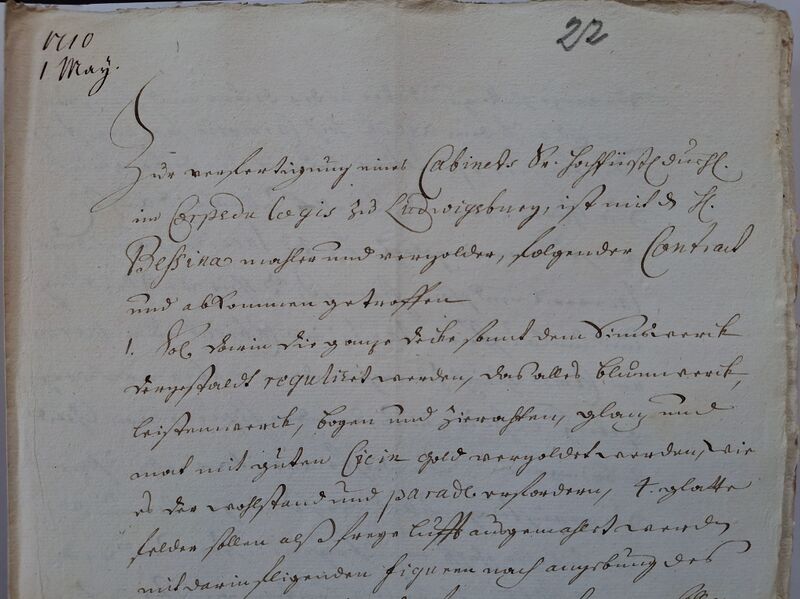 1710
1 May.
22
Zur verfertigung eines Cabinets Sr. hochfürstl. durchl.
im Corps du Logis zu Ludwigsburg, ist mit d H.
Beßina mahler und vergolder, folgender Contract
und abkommen getroffen
1. Sol darin die ganze decke samt dem Simswerck
dergestaldt regulieret werden, das alles blumwerck,
leistenwerck, bogen und Zierathen, glanz und
mat mit guten gold vergoldet werden, wie
es der wohlstand und erfordern, 4. glatte
felder sollen alß freye lufft ausgemahlet werden
mit darin fligenden figuren nach angebung des